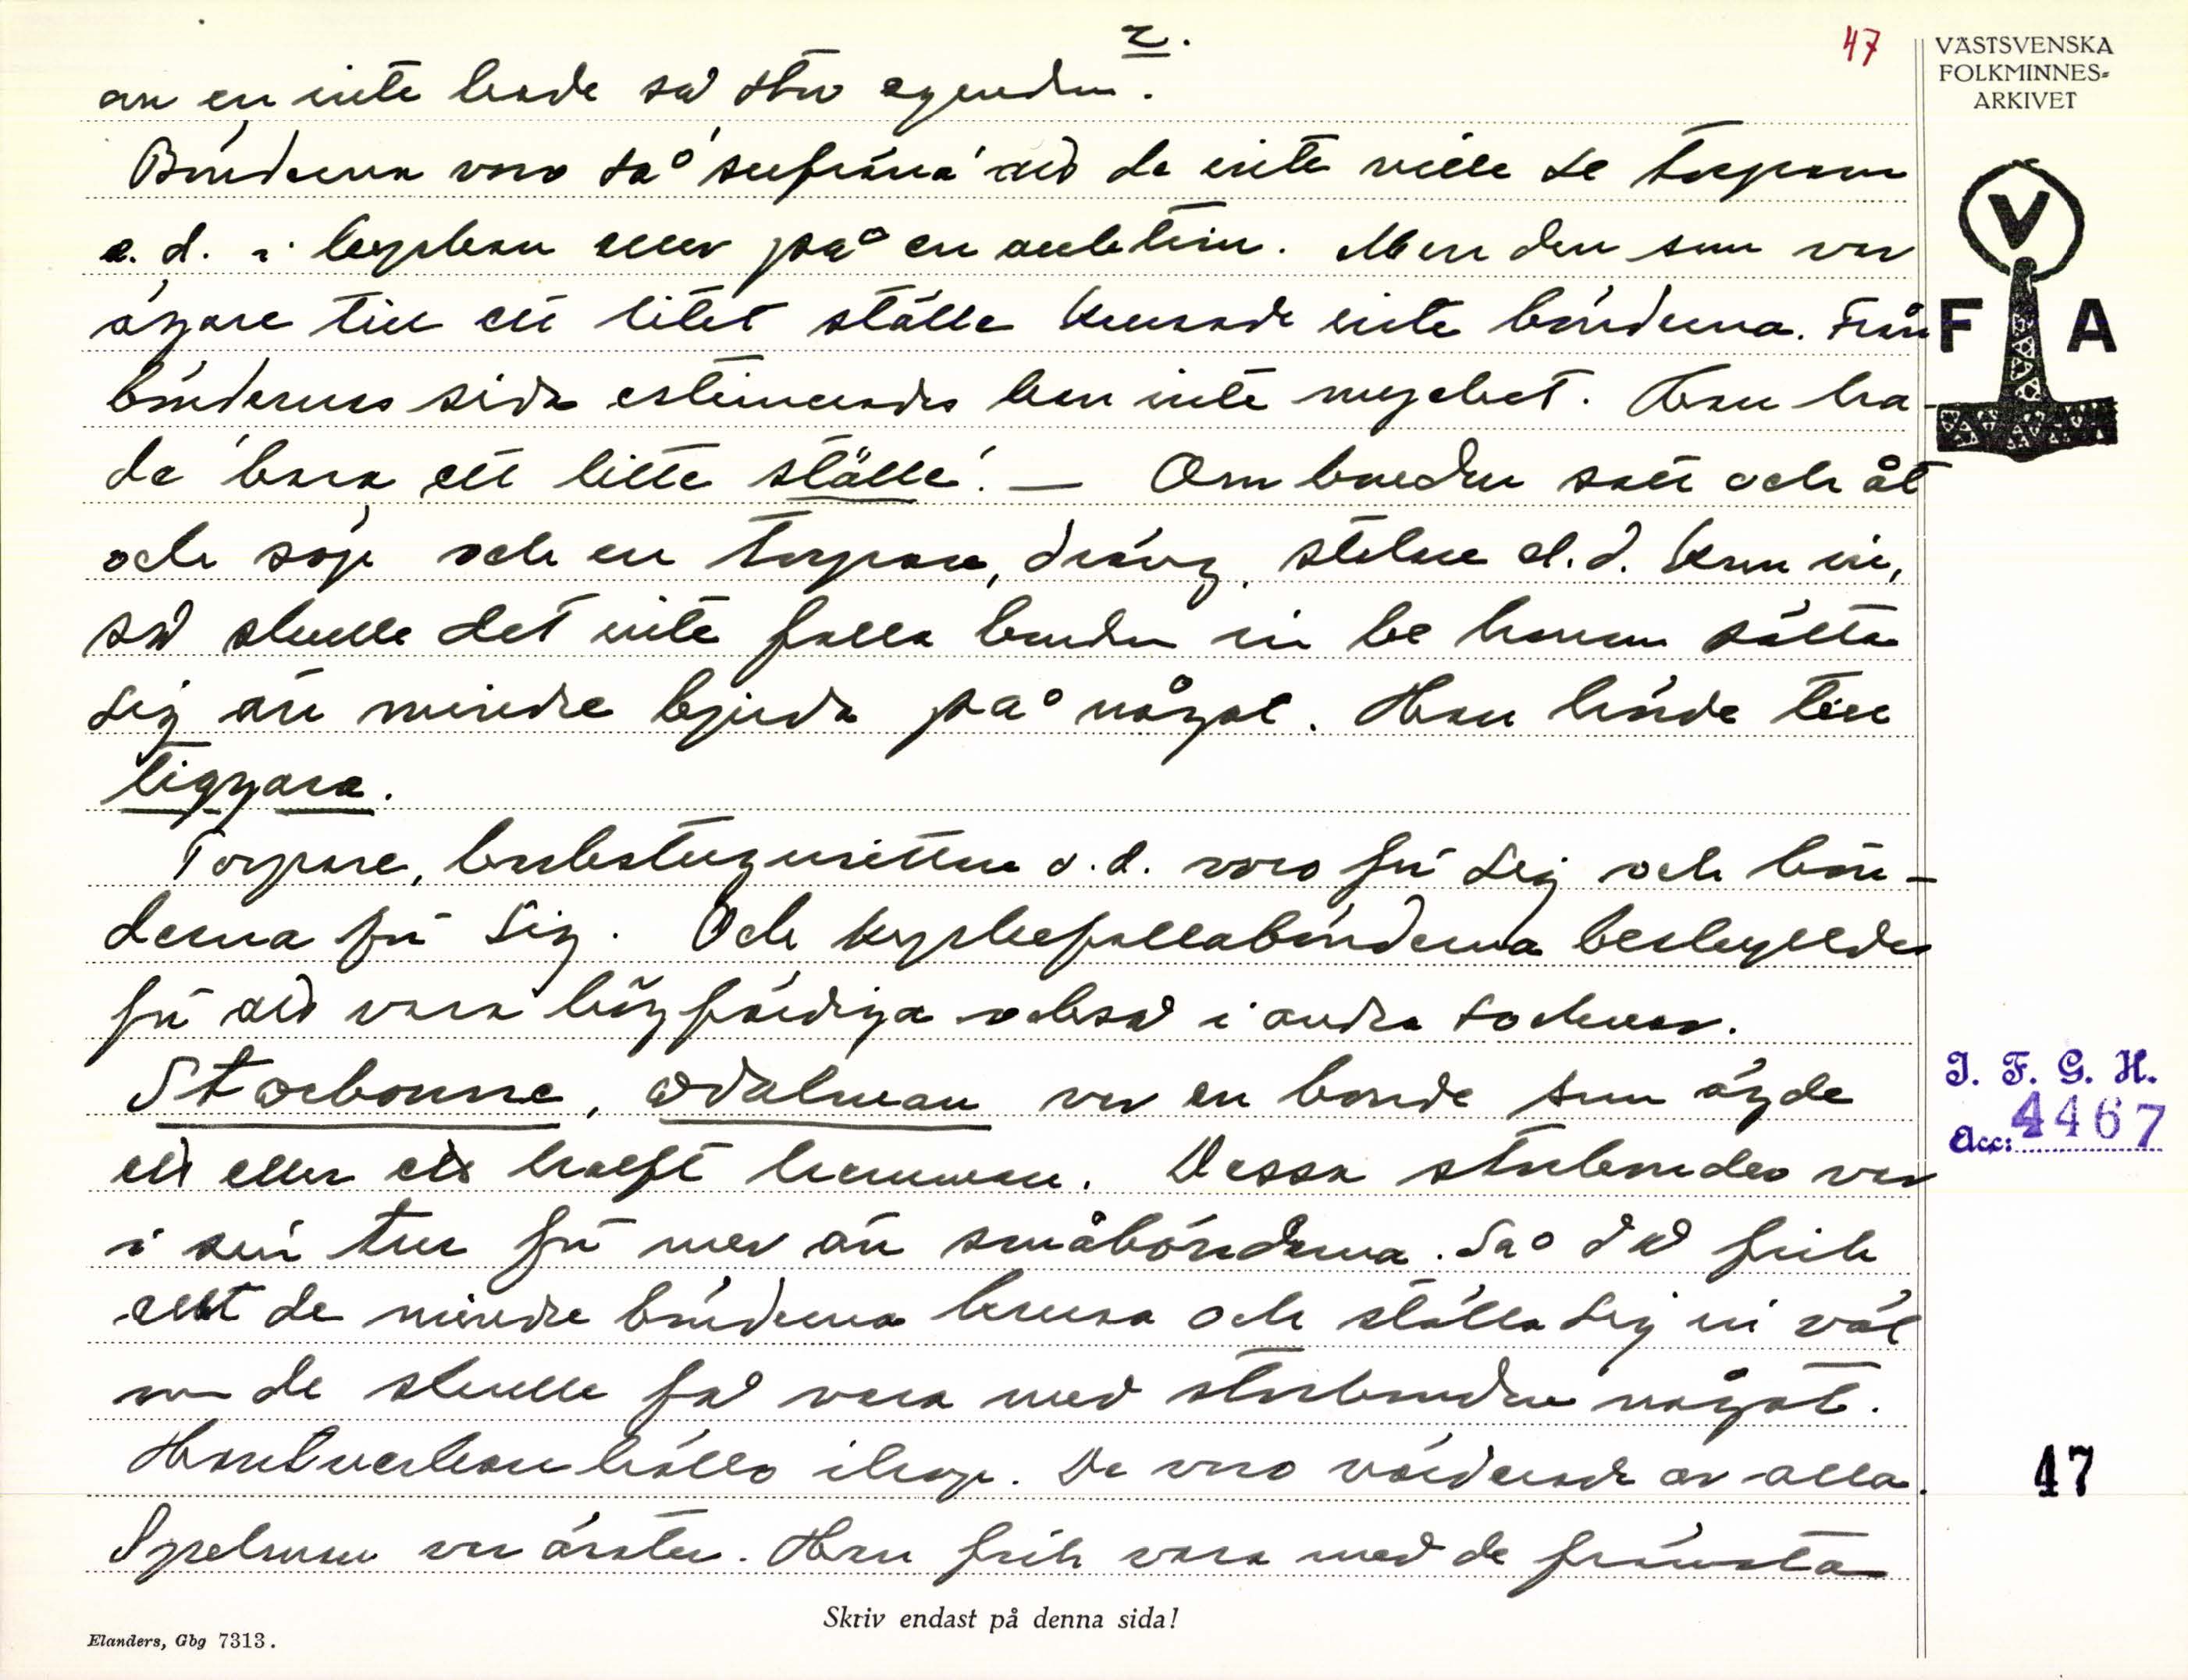 2.
47
an en inte hade så stor egendom.
Bönderna voro så 'sufräna' att de inte ville se torpare
o.d. i kyrkan eller på en auktion. Men den som var
ägare till ett litet ställe kursade inte bönderna. Från
böndernas sida estimerades han inte mycket. Han ha-
de 'bara ett litte ställe'. — Om bonden satt och åt
och söp och en torpare, dräng, statare el.d. kom in,
så skulle det inte falla bonden in be honom sätta
sig än mindre bjuda på något. Han hörde till
tiggara.
Torpare, backstugusittare o.d. voro för sig och bön-
derna för sig. Och kyrkefallabönderna beskylldes
för att vara högfärdiga också i andra socknar.
Storbonne, odalman var en bonde som ägde
ett eller ett halft hemman. Dessa storbönder var
i sin tur för mer än småbönderna. Så då fick
allt de mindre bönderna krusa och ställa sig in väl
om de skulle få vara med storbönderna något.
Hantverkare höllo ihop. De voro värderade av alla.
Spelman var ärater. Han fick vara med de främsta
Skriv endast på denna sida!
Elanders, Gbg 7313.
VÄSTSVENSKA
FOLKMINNES-
ARKIVET
V
F A
I. F. G. H.
Acc: 4467
47